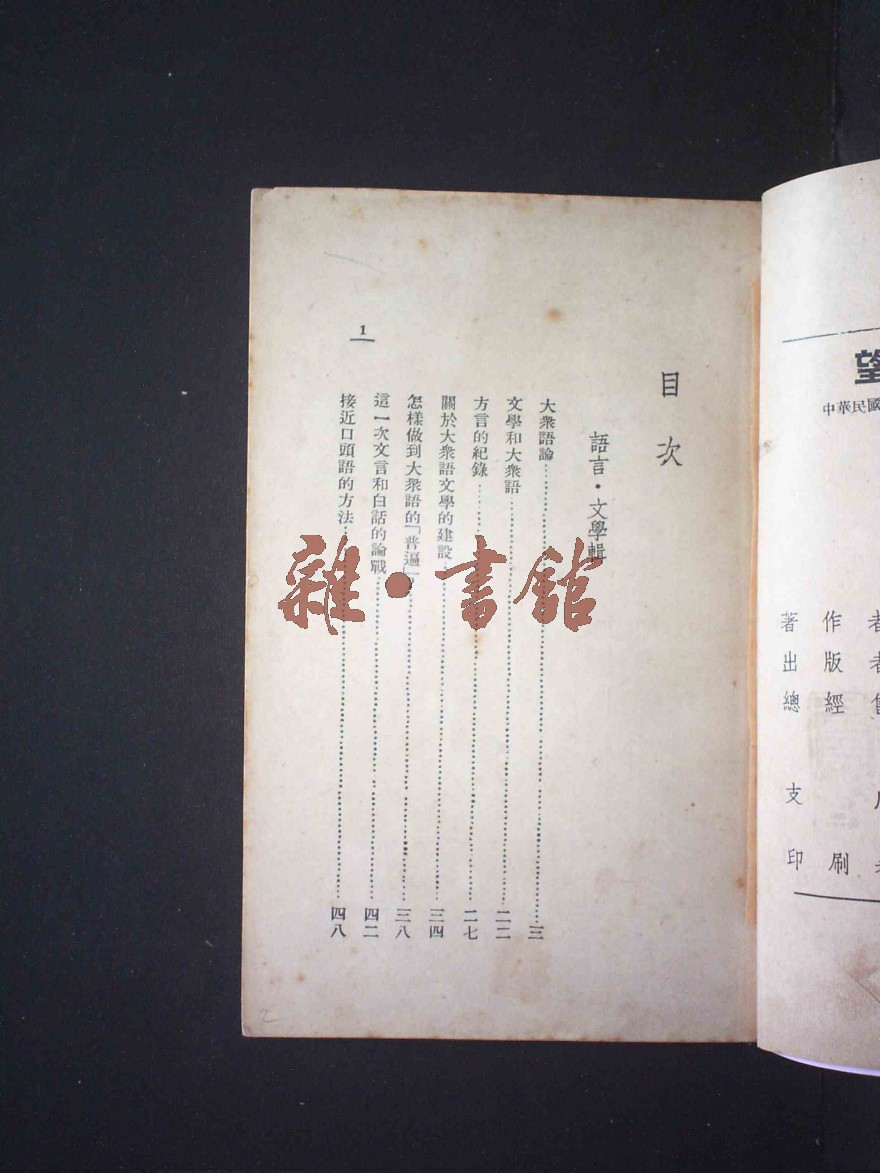 望
中華民國
著作者
出版者
總經售
支
印刷者
目次
語言・文學輯
大衆語論……三
文學和大衆語……二二
方言的紀錄……二七
關於大衆語文學的建設……三四
怎樣做到大衆語的「普遍」……三八
這一次文言和白話的論戰……四二
接近口頭語的方法……四八
1
雜・書館